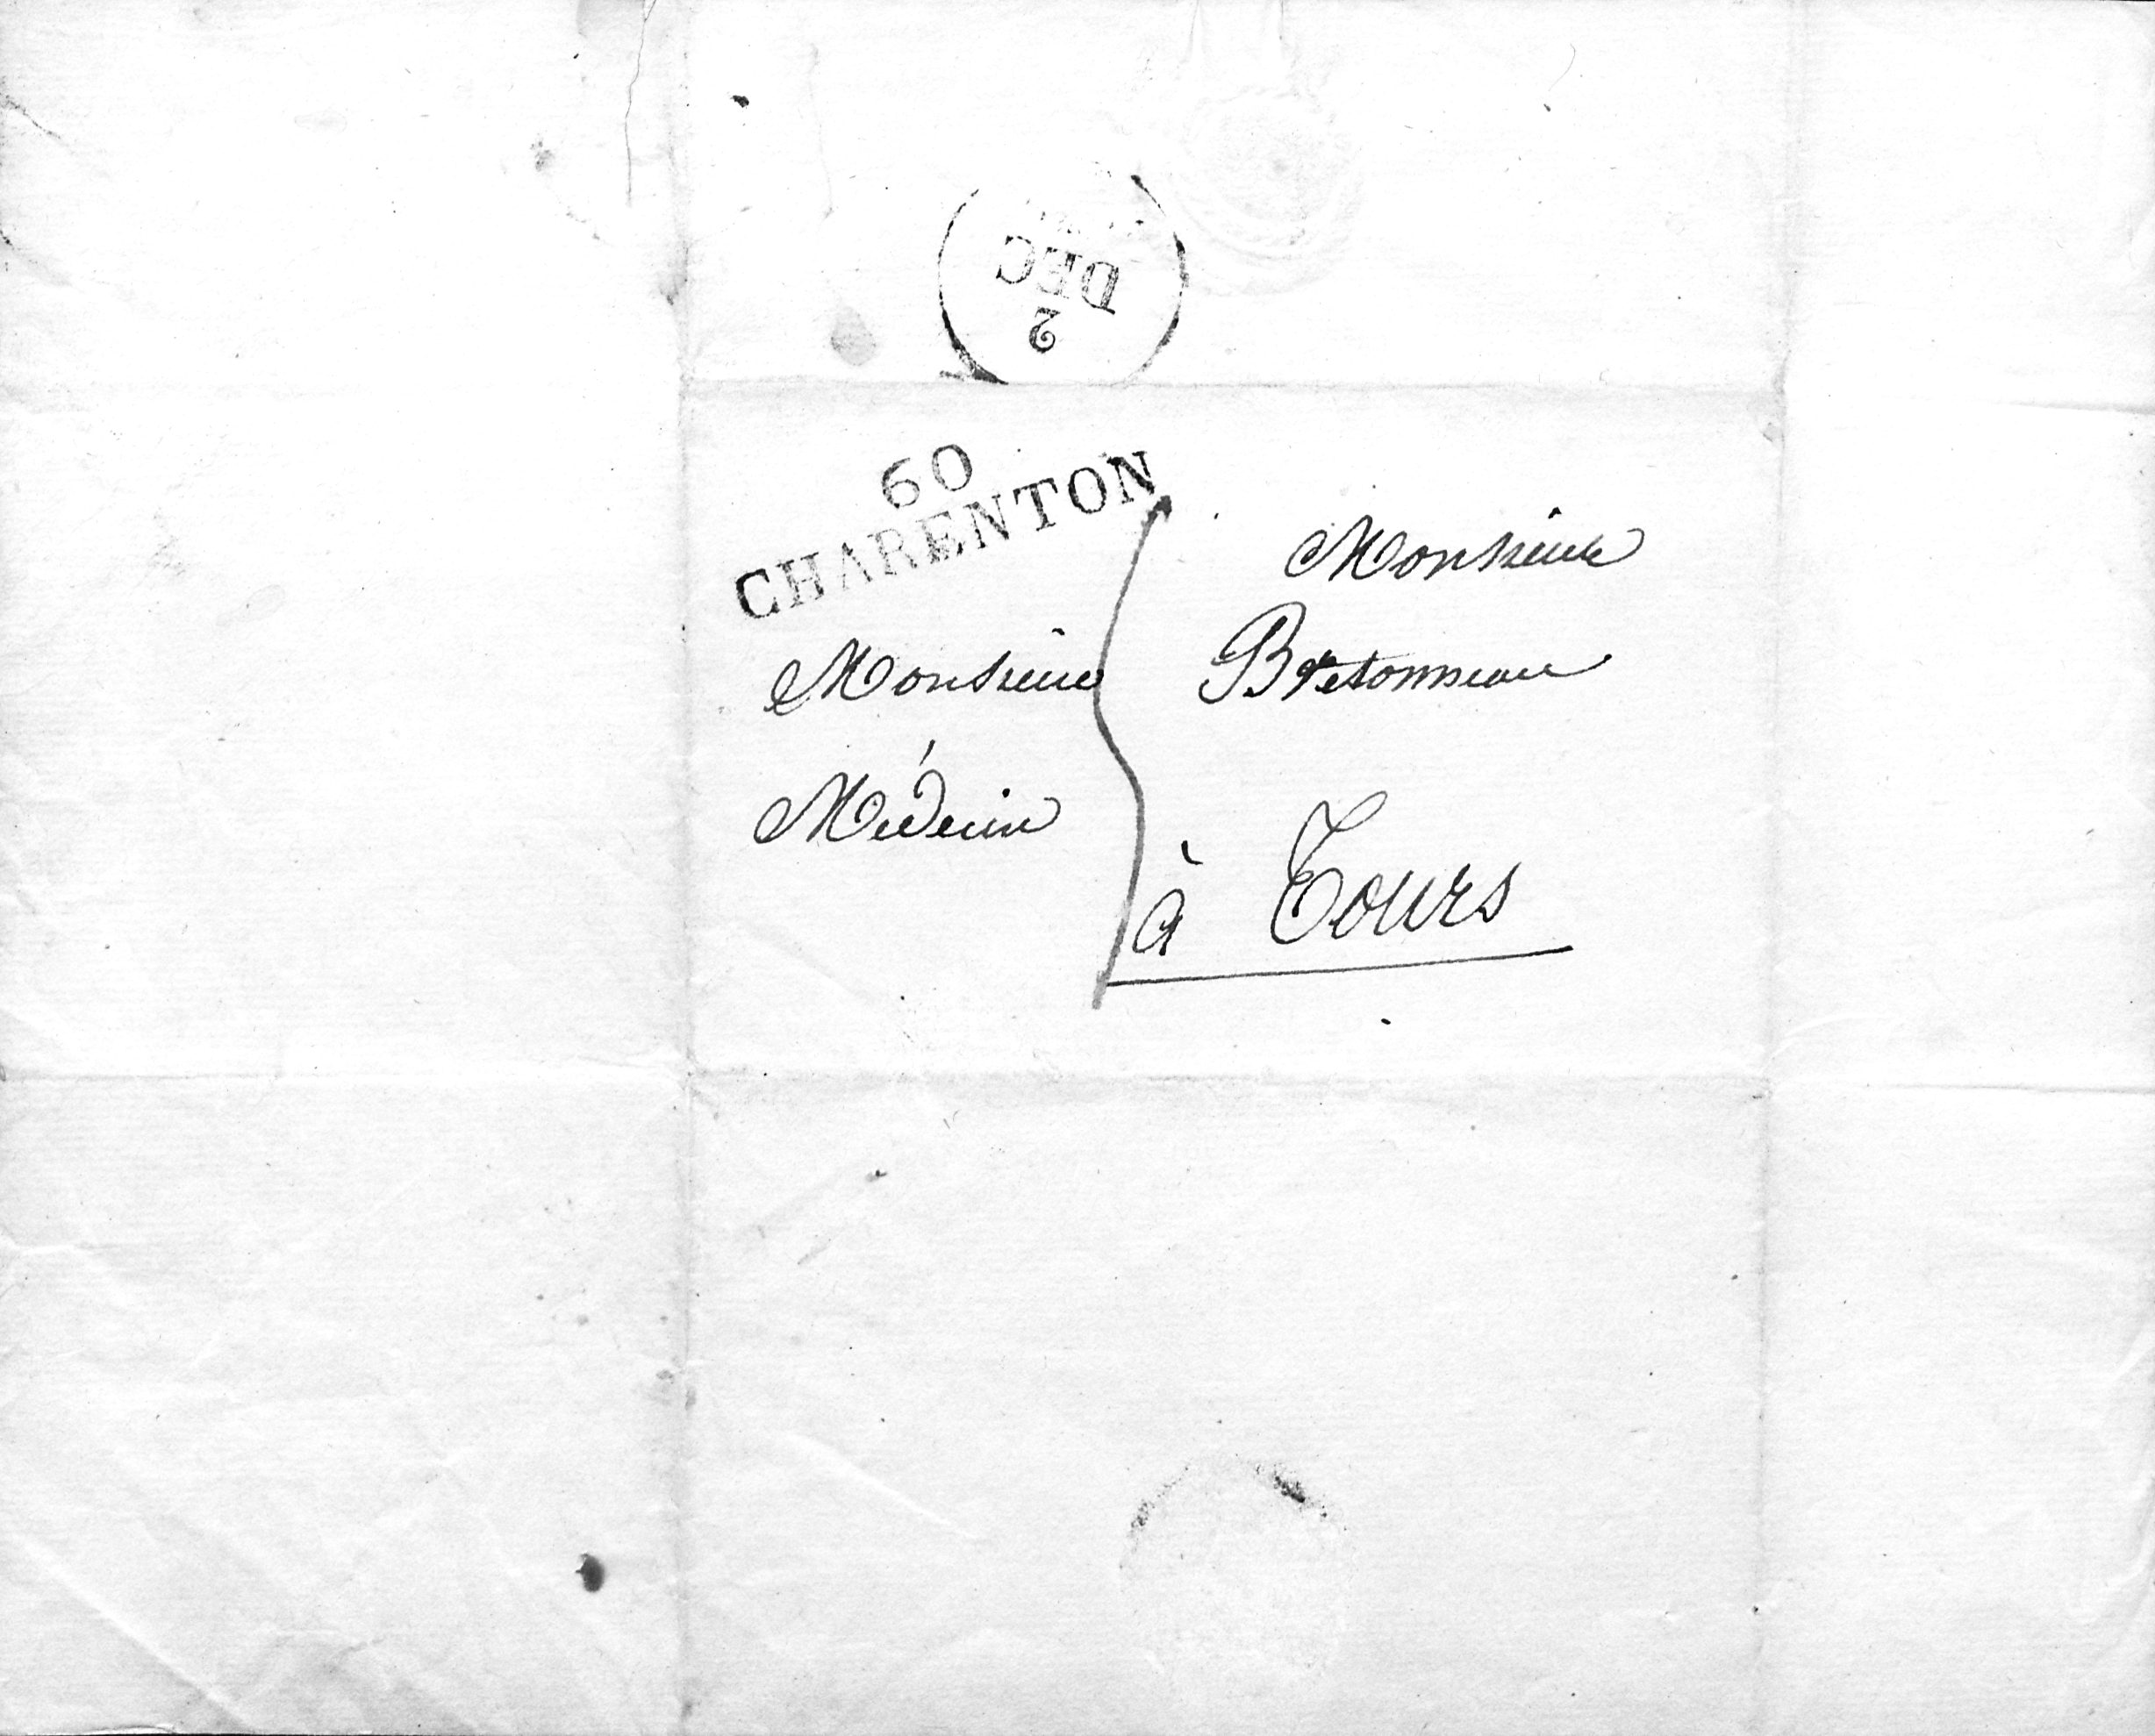 DEC
2
60
CHARENTON
Monsieur
Monsieur
Bretonneau
Médecin
à Tours